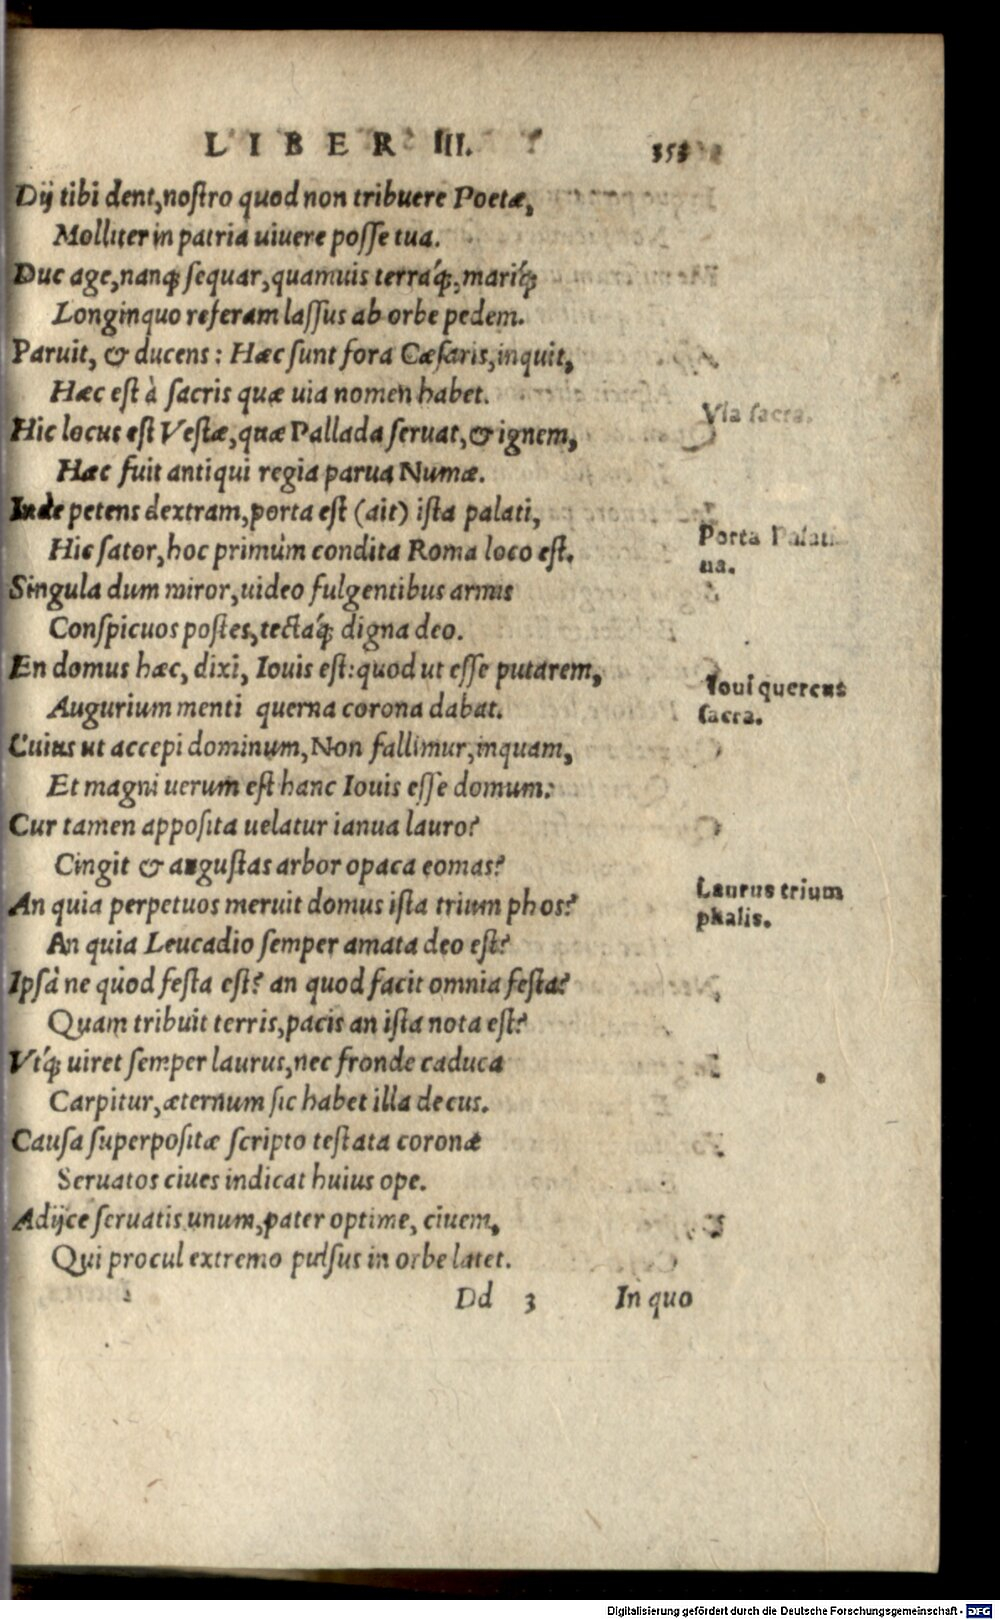 LIBER III. 353
Dij tibi dent, nostro quod non tribuere Poetæ,
Molliter in patria uiuere posse tua.
Duc age, nanq; sequar, quamuis terráq;, mariq́;
Longinquo referam lassus ab orbe pedem.
Paruit, & ducens: Hæc sunt fora Cæsaris, inquit,
Hæc est à sacris quæ uia nomen habet.
Via sacra.
Hic locus est Vestæ, quæ Pallada seruat, & ignem,
Hæc fuit antiqui regia parua Numæ.
Inde petens dextram, porta est (ait) ista palati,
Porta Palati
na.
Hic sator, hoc primùm condita Roma loco est.
Singula dum miror, uideo fulgentibus armis
Conspicuos postes, tectáq; digna deo.
En domus hæc, dixi, Iouis est: quod ut esse putarem,
Ioui quercus
sacra.
Augurium menti querna corona dabat.
Cuius ut accepi dominum, Non fallimur, inquam,
Et magni uerum est hanc Iouis esse domum:
Cur tamen apposita uelatur ianua lauro?
Cingit & augustas arbor opaca comas?
An quia perpetuos meruit domus ista trium phos?
Laurus trium
phalis.
An quia Leucadio semper amata deo est?
Ipsà ne quòd festa est? an quod facit omnia festa?
Quam tribuit terris, pacis an ista nota est?
Vtq́; uiret semper laurus, nec fronde caduca
Carpitur, æternum sic habet illa decus.
Causa superpositæ scripto testata coronæ
Seruatos ciues indicat huius ope.
Adijce seruatis unum, pater optime, ciuem,
Qui procul extremo pulsus in orbe latet.
Dd 3 In quo
Digitalisierung gefördert durch die Deutsche Forschungsgemeinschaft - DFG